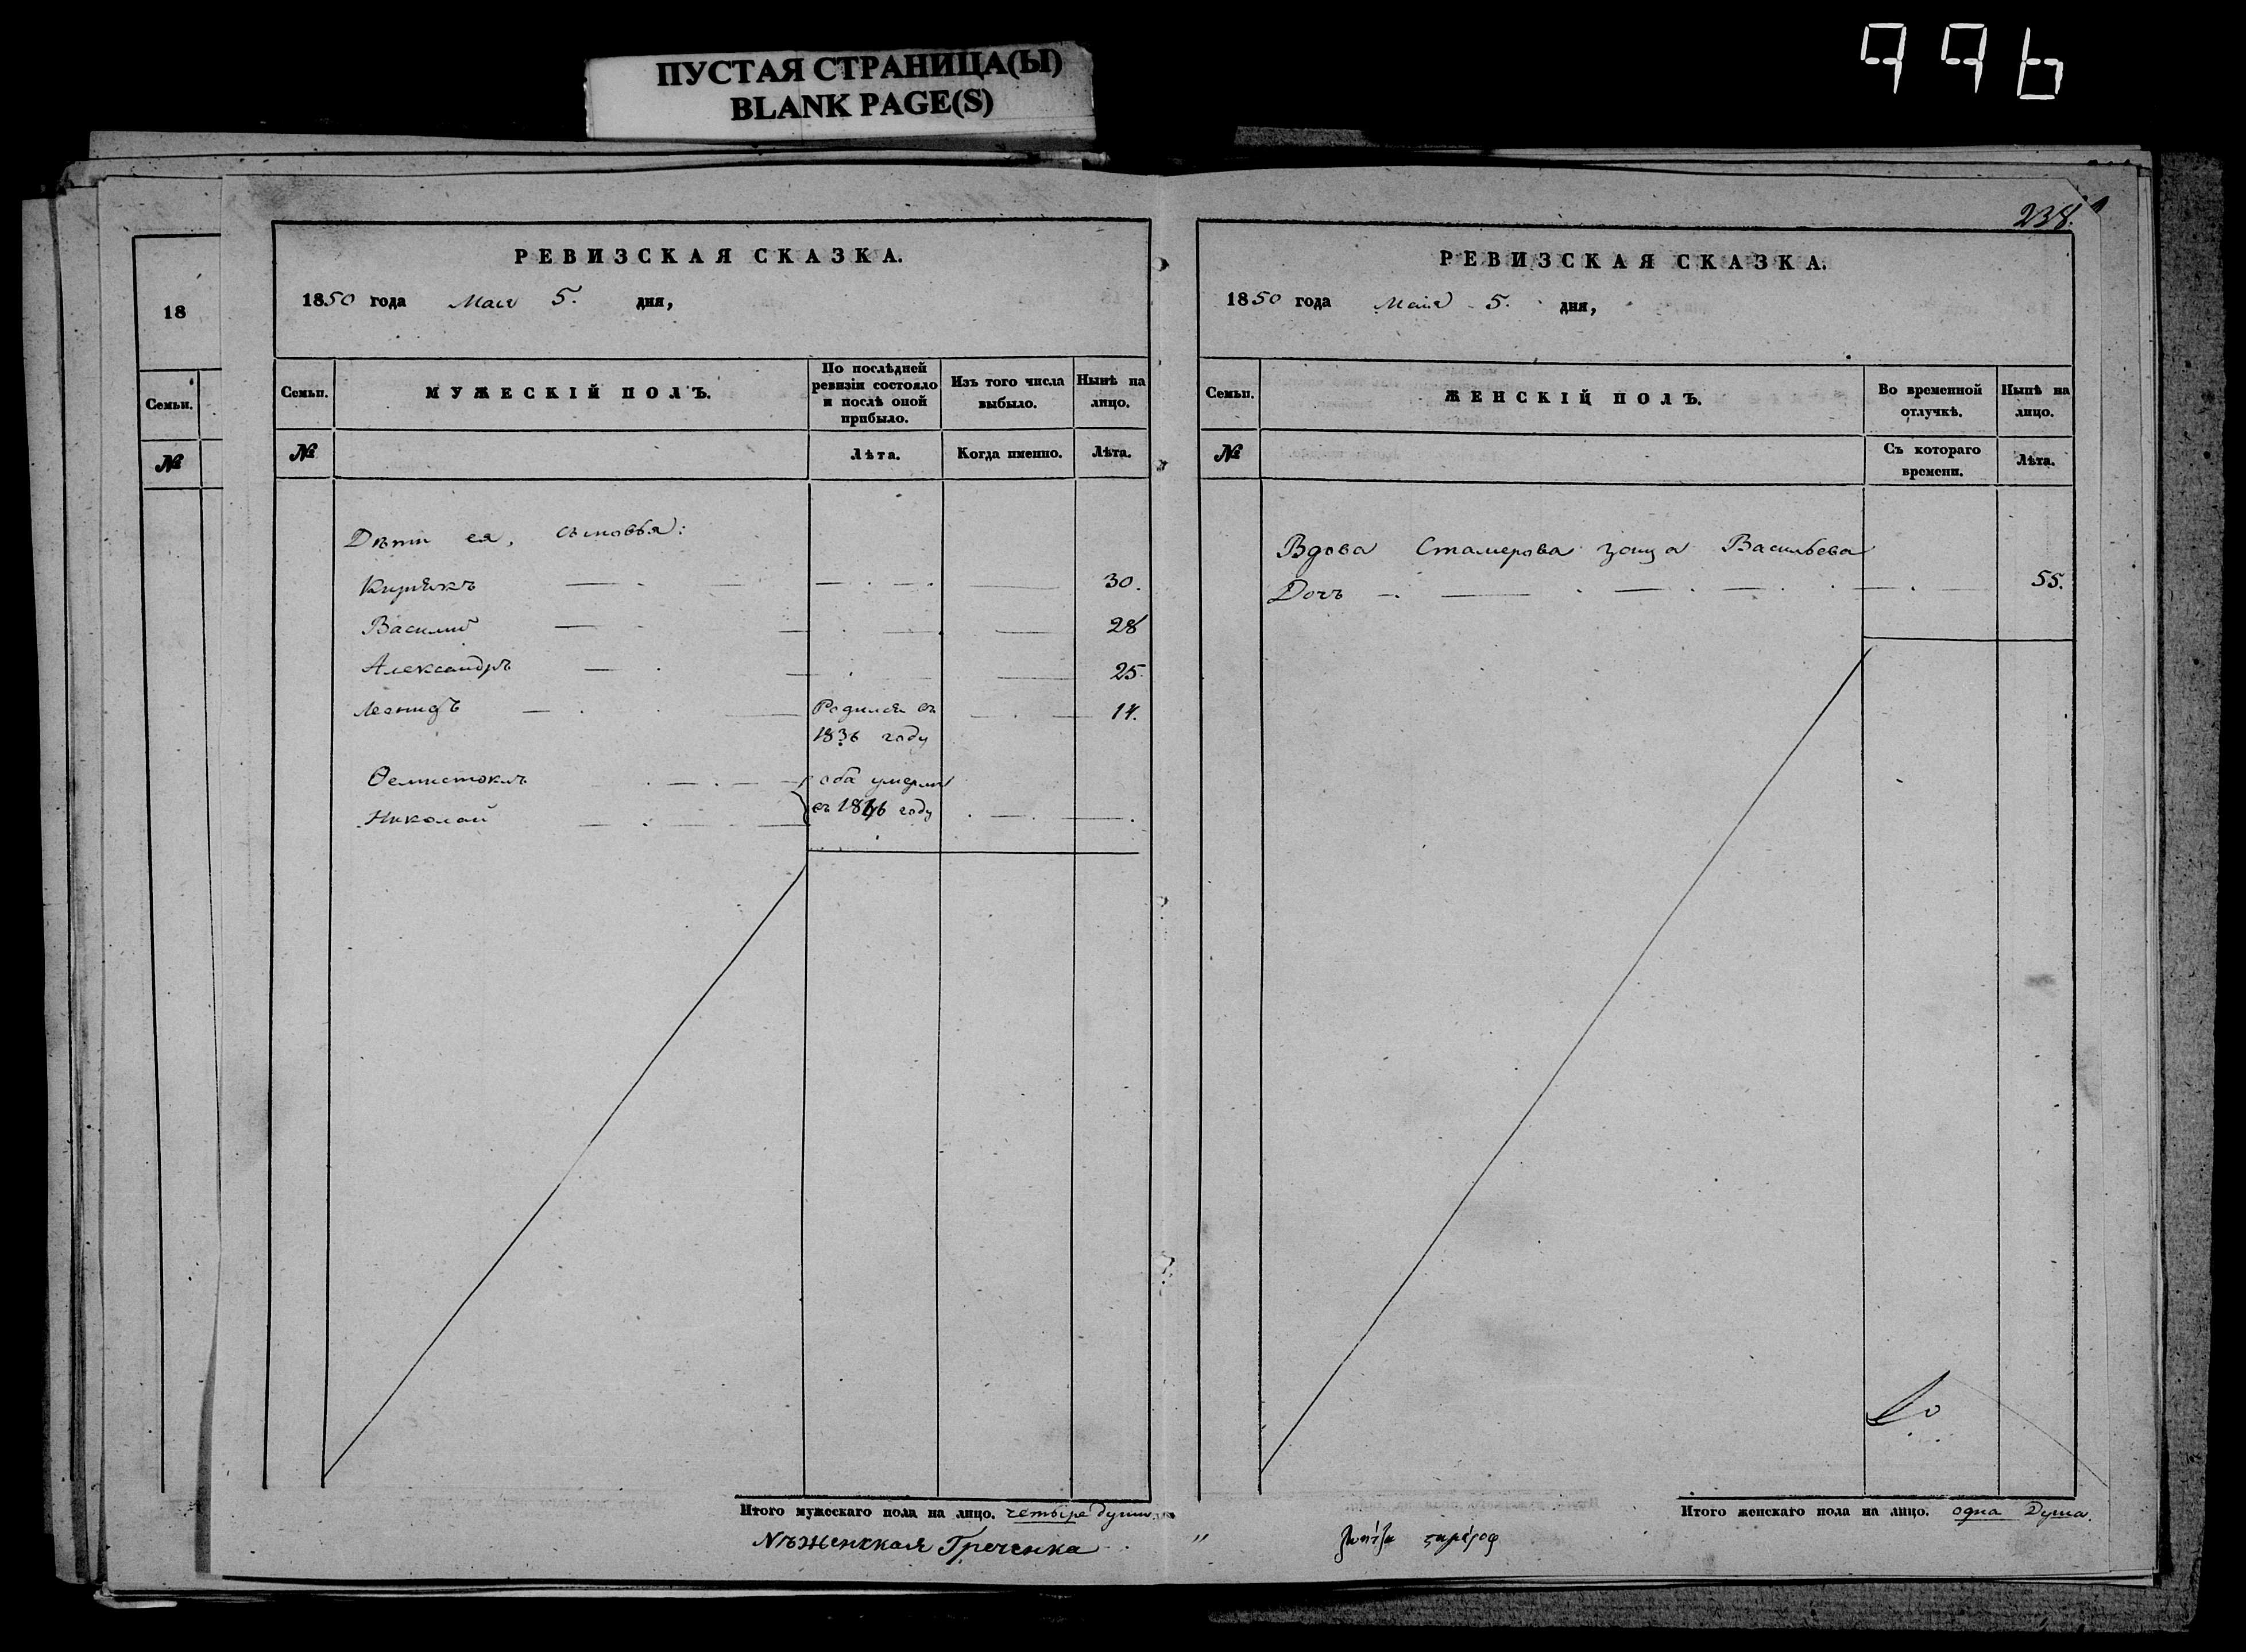 ПУСТАЯ СТРАНИЦА(Ы)
BLANK PAGE(S)
996
238.
18
Семьи.
№
РЕВИЗСКАЯ СКАЗКА.
1850 года Мая 5. дня,
Семьи.
МУЖЕСКІЙ ПОЛЪ.
По послѣдней ревизіи состояло и послѣ оной прибыло.
Изъ того числа выбыло.
Нынѣ на лицо.
№
Лѣта.
Когда именно.
Лѣта.
Дѣти ея, сыновья:
Кирьякъ 30.
Василий 28
Александръ 25
Леонидъ Родился въ 14.
1836 году
Ѳемистоклъ оба умерли
Николай въ 1846 году
Итого мужескаго пола на лицо. четыре души.
Нѣженская Греченка
РЕВИЗСКАЯ СКАЗКА.
1850 года Маія 5. дня,
Семьи.
ЖЕНСКІЙ ПОЛЪ.
Во временной отлучкѣ.
Нынѣ на лицо.
№
Съ котораго времени.
Лѣта.
Вдова Стамерова Васильева
Дочь 55.
Итого женскаго пола на лицо. одна Душа.